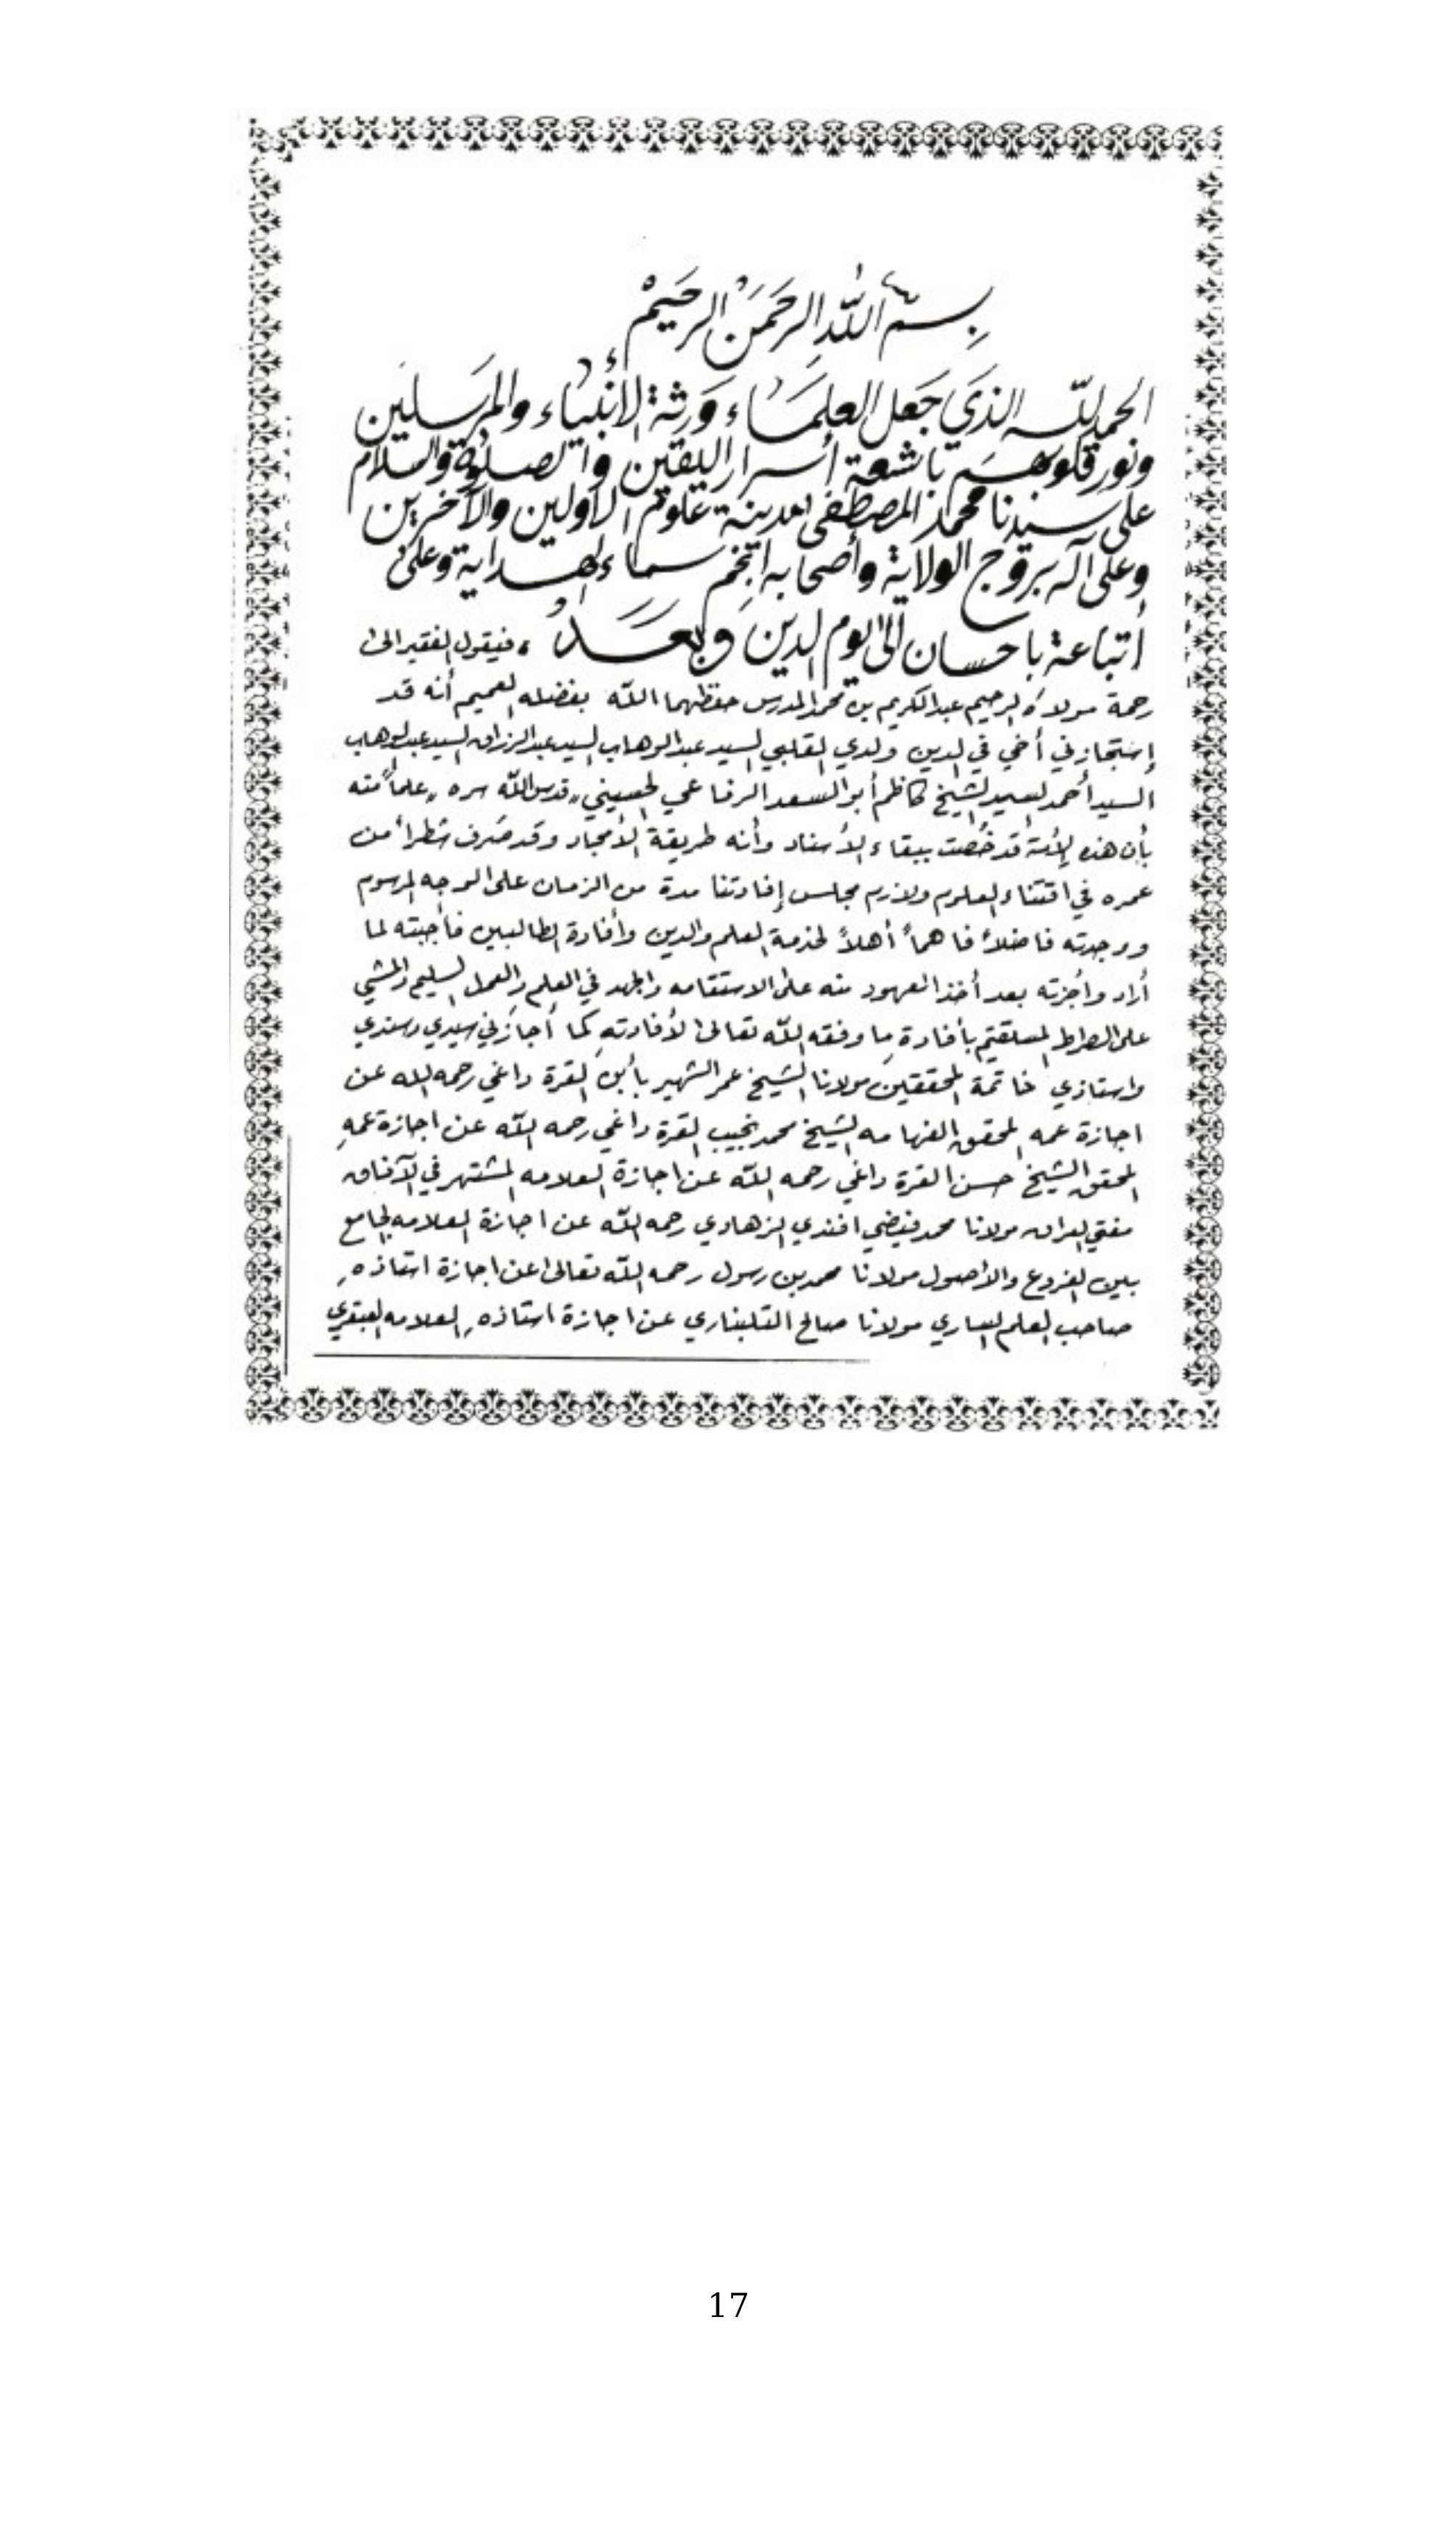 بسم الله الرحمن الرحيم
الحمد لله الذي جعل العلماء ورثة الأنبياء والمرسلين
ونور قلوبهم بأشعة أسرار اليقين والصلوة والسلام
على سيدنا محمد المصطفى مدينة علوم الأولين والآخرين
وعلى آله بروج الولاية وأصحابه انجم سماء الهداية وعلى
أتباعة باحسان الى يوم الدين وبعد ، فيقول الفقير الى
رحمة مولاه الرحيم عبدالكريم بن محمد المدرس حفظهما الله بفضله العميم أنه قد
إستجازني أخي في الدين ولدي القلبي السيد عبدالوهاب السيد عبدالرزاق السيد عبدالوهاب
السيد أحمد السيد الشيخ كاظم أبو السعد الرفاعي الحسيني "قدس الله سره" علماً منه
بأن هذه الأمة قد خُصت ببقاء الأسناد وأنه طريقة الأمجاد وقد صَرف شطراً من
عمره في اقتناء العلوم ولازم مجلس إفادتنا مدة من الزمان على الوجه المرسوم
ووجدته فاضلاً فاهماً أهلاً لخدمة العلم والدين وأفادة الطالبين فأجبته لما
أراد وأجزته بعد أخذ العهود منه على الاستقامه والجهد في العلم والعمل السليم والمشي
على الصراط المستقيم بأفادة ما وفقه الله تعالى لأفادته كما أجازني سيدي وسندي
واستاذي خاتمة المحققين مولانا الشيخ عمر الشهير بأبن القرة داغي رحمه الله عن
اجازة عمه المحقق الفهامه الشيخ محمد نجيب القرة داغي رحمه الله عن اجازة عمه
المحقق الشيخ حسن القرة داغي رحمه الله عن اجازة العلامه المشتهر في الآفاق
مفتي العراق مولانا محمد فيضي افندي الزهاوي رحمه الله عن اجازة العلامه الجامع
بين الفروع والأصول مولانا محمد بن رسول رحمه الله تعالى عن اجازة استاذه
صاحب العلم الساري مولانا صالح التلبناري عن اجازة استاذه العلامه العبقري
17